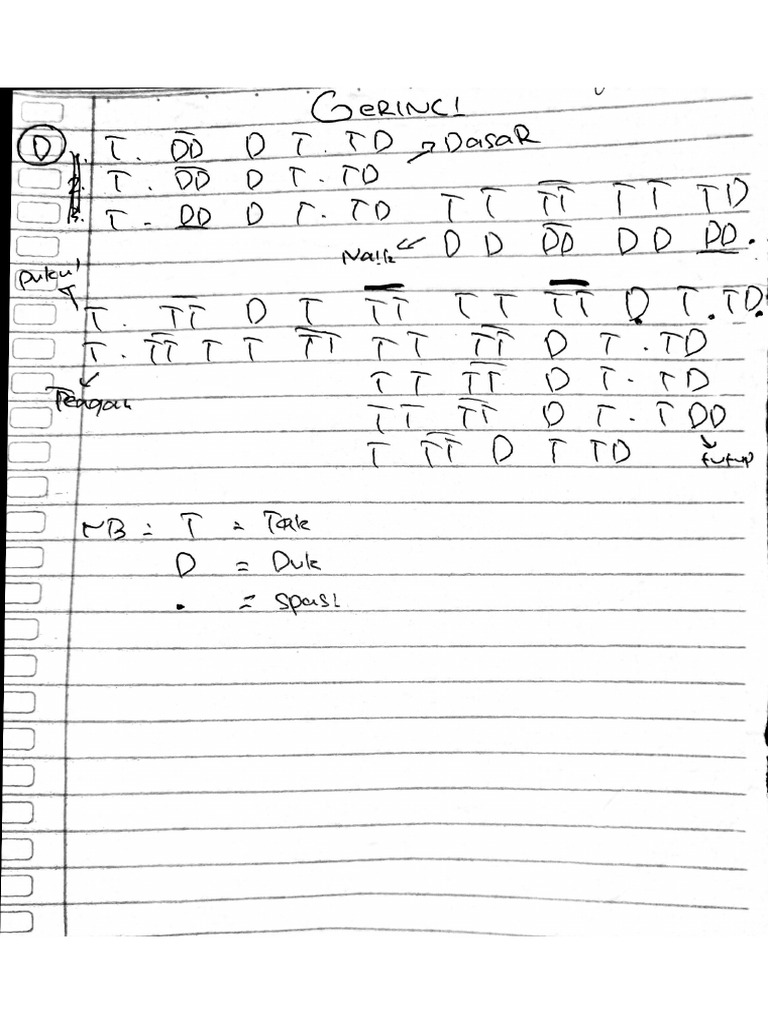 GERINCI
D 1. T. D̅D̅ D T. TD → DasaR
2. T. D̅D̅ D T. TD
3. T. D̲D̲ D T. TD T T T̅T̅ T T TD
Naik ← D D D̅D̅ D D D̲D̲.
Pukul
T. T̅T̅ D T T̅T̅ T T T̅T̅ D. T. TD.
T. T̅T̅ T T T̅T̅ T T T̅T̅ D T. TD
T T T̅T̅ D T. TD
T T T̅T̅ D T. T DD
T T̅T̅ D T TD tutup
NB = T = Tak
D = Duk
. = Spasi